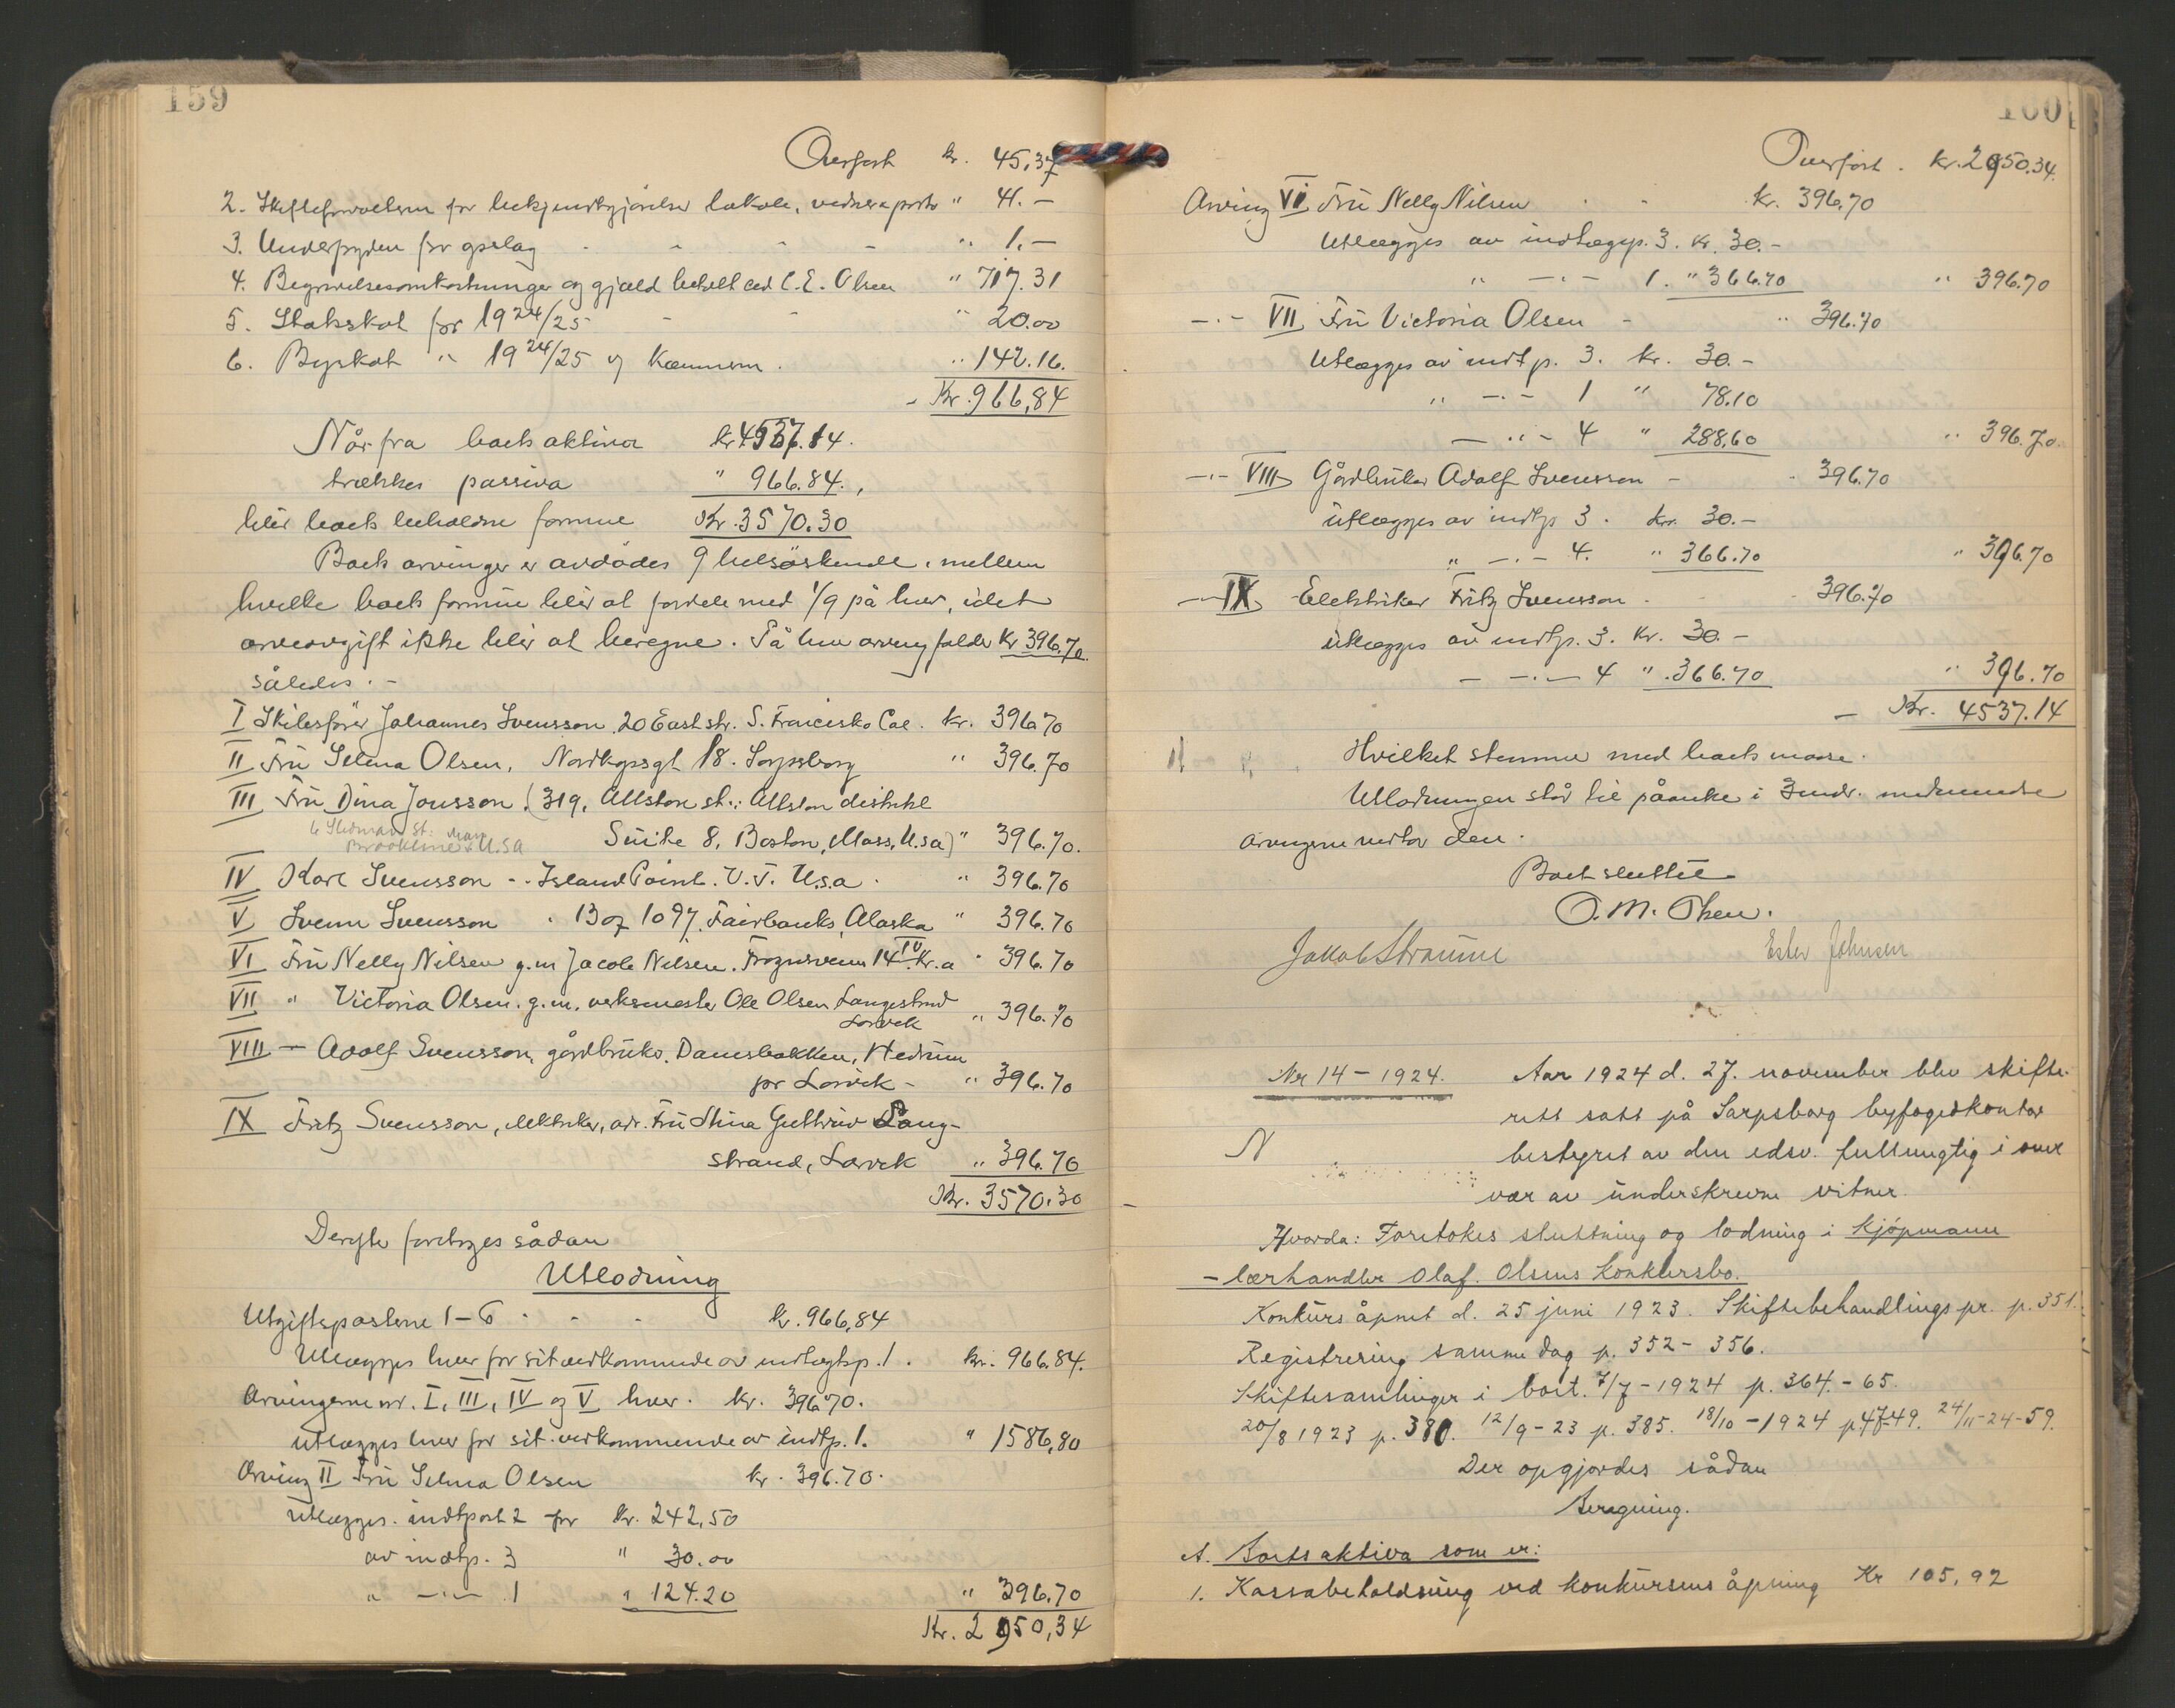 159
Overført kr. 45,37
2. Skifteforvalteren for bekjendtgjørelser lokale, vidner & porto " 41.-
3. Underfogden for opslag " 1.-
4. Begravelsesomkostninger og gjæld betalt ved C.E. Olsen " 717.31
5. Statsskat for 1924/25 " 20.00
6. Byskat " 1924/25 og Kæmnern. " 142.16.
- Kr. 966,84
Når fra boets aktiva kr 4537.14.
trækkes passiva " 966.84.,
blir boets beholdne formue Kr. 3570.30
Boets arvinger er avdødes 9 helsøskende, mellem
hvilke boets formue blir at fordele med 1/9 på hver, idet
arveavgift ikke blir at beregne. På hver arving falder Kr 396.70.
således.-
I Skibsfører Johannes Svensson, 20 East str. S. Francisko Cal. kr. 396.70
II Fru Selma Olsen, Nordbygsgt 18. Sarpsborg " 396.70
III Fru Dina Jonsson, (319, Allston st.: Allston distrikt
St: Mass
Brookline U.SA Suite 8, Boston, Mass, U.sa) " 396.70.
IV Karl Svensson - Island Point. V.T. U.s.a. " 396.70
V Svenn Svensson. Box 1097, Fairbanks, Alaska " 396.70
VI Fru Nelly Nilsen g.m Jacob Nilsen. Frognerveien 14 IV Kr.a " 396.70
VII " Victoria Olsen. g.m. verksmester Ole Olsen Langestrand
Larvik " 396.70
VIII - Adolf Svensson, gårdbruker, Damsbakken, Hedrum
pr Larvik - " 396.70
IX Fritz Svensson, elektriker, adr. Fru Stina Lang-
strand, Larvik " 396.70
Kr. 3570.30
Derefter foretoges sådan
Utlodning
Utgiftsposterne 1-6 kr. 966,84
Utlægges hver for sit vedkommende av indtægtsp. 1. kr. 966.84.
Arvingerne nr. I, III, IV og V hver. kr. 396.70.
utlægges hver for sit vedkommende av indtp. 1. " 1586,80
Arving II Fru Selma Olsen kr. 396.70.
Utlægges. indtpost 2 for kr. 242,50
av indtp. 3 " 30.00
" -"- 1 " 124.20 " 396.70
Kr. 2950,34
160
Overført. kr. 2950.34.
Arving VI Fru Nelly Nilsen kr. 396.70
Utlægges av indtægtp. 3. kr. 30.-
" -"- 1. " 366.70 " 396.70
-"- VII Fru Victoria Olsen - " 396.70
Utlægges av indtp. 3. kr. 30.-
" -"- 1 " 78.10
-"- 4 " 288,60 " 396.70.
-"- VIII Gårdbruker Adolf Svensson - 396.70
utlægges av indtp 3. kr. 30.-
" -"- 4. " 366.70 " 396.70
-"- IX Elektriker Fritz Svensson. 396.70
utlægges av indtp. 3. kr. 30.-
-"- 4 " 366.70 " 396.70
- Kr. 4537.14
Hvilket stemmer med boets masse.
Utlodningen står til påanke i 3 mdr. medmindre
arvingerne vedtar den.
Boet sluttet
O. M. Olsen.
Jakob Straume Ester Johnsen
Nr 14 - 1924. Aar 1924 d. 27. november blev skifte-
rett satt på Sarpsborg byfogedkontor
N bestyret av den edsv. fullmægtig i over
vær av underskrevne vitner.
Hvorda: Foretokes sluttning og lodning i kjøpmann
- lærhandler Olaf. Olsens konkursbo.
Konkurs åpnet d. 25 juni 1923. Skiftebehandlings pr. p. 351.
Registrering samme dag p. 352 - 356.
Skiftesamlinger i boet. 7/7 - 1924 p. 364.- 65.
20/8 1923 p. 380. 12/9 - 23 p. 385. 18/10 - 1924 p. 47-49. 24/11-24-59.
Der opgjordes sådan
Beregning.
A. Boets aktiva som er:
1. Kassabeholdning ved konkursens åpning Kr 105,92